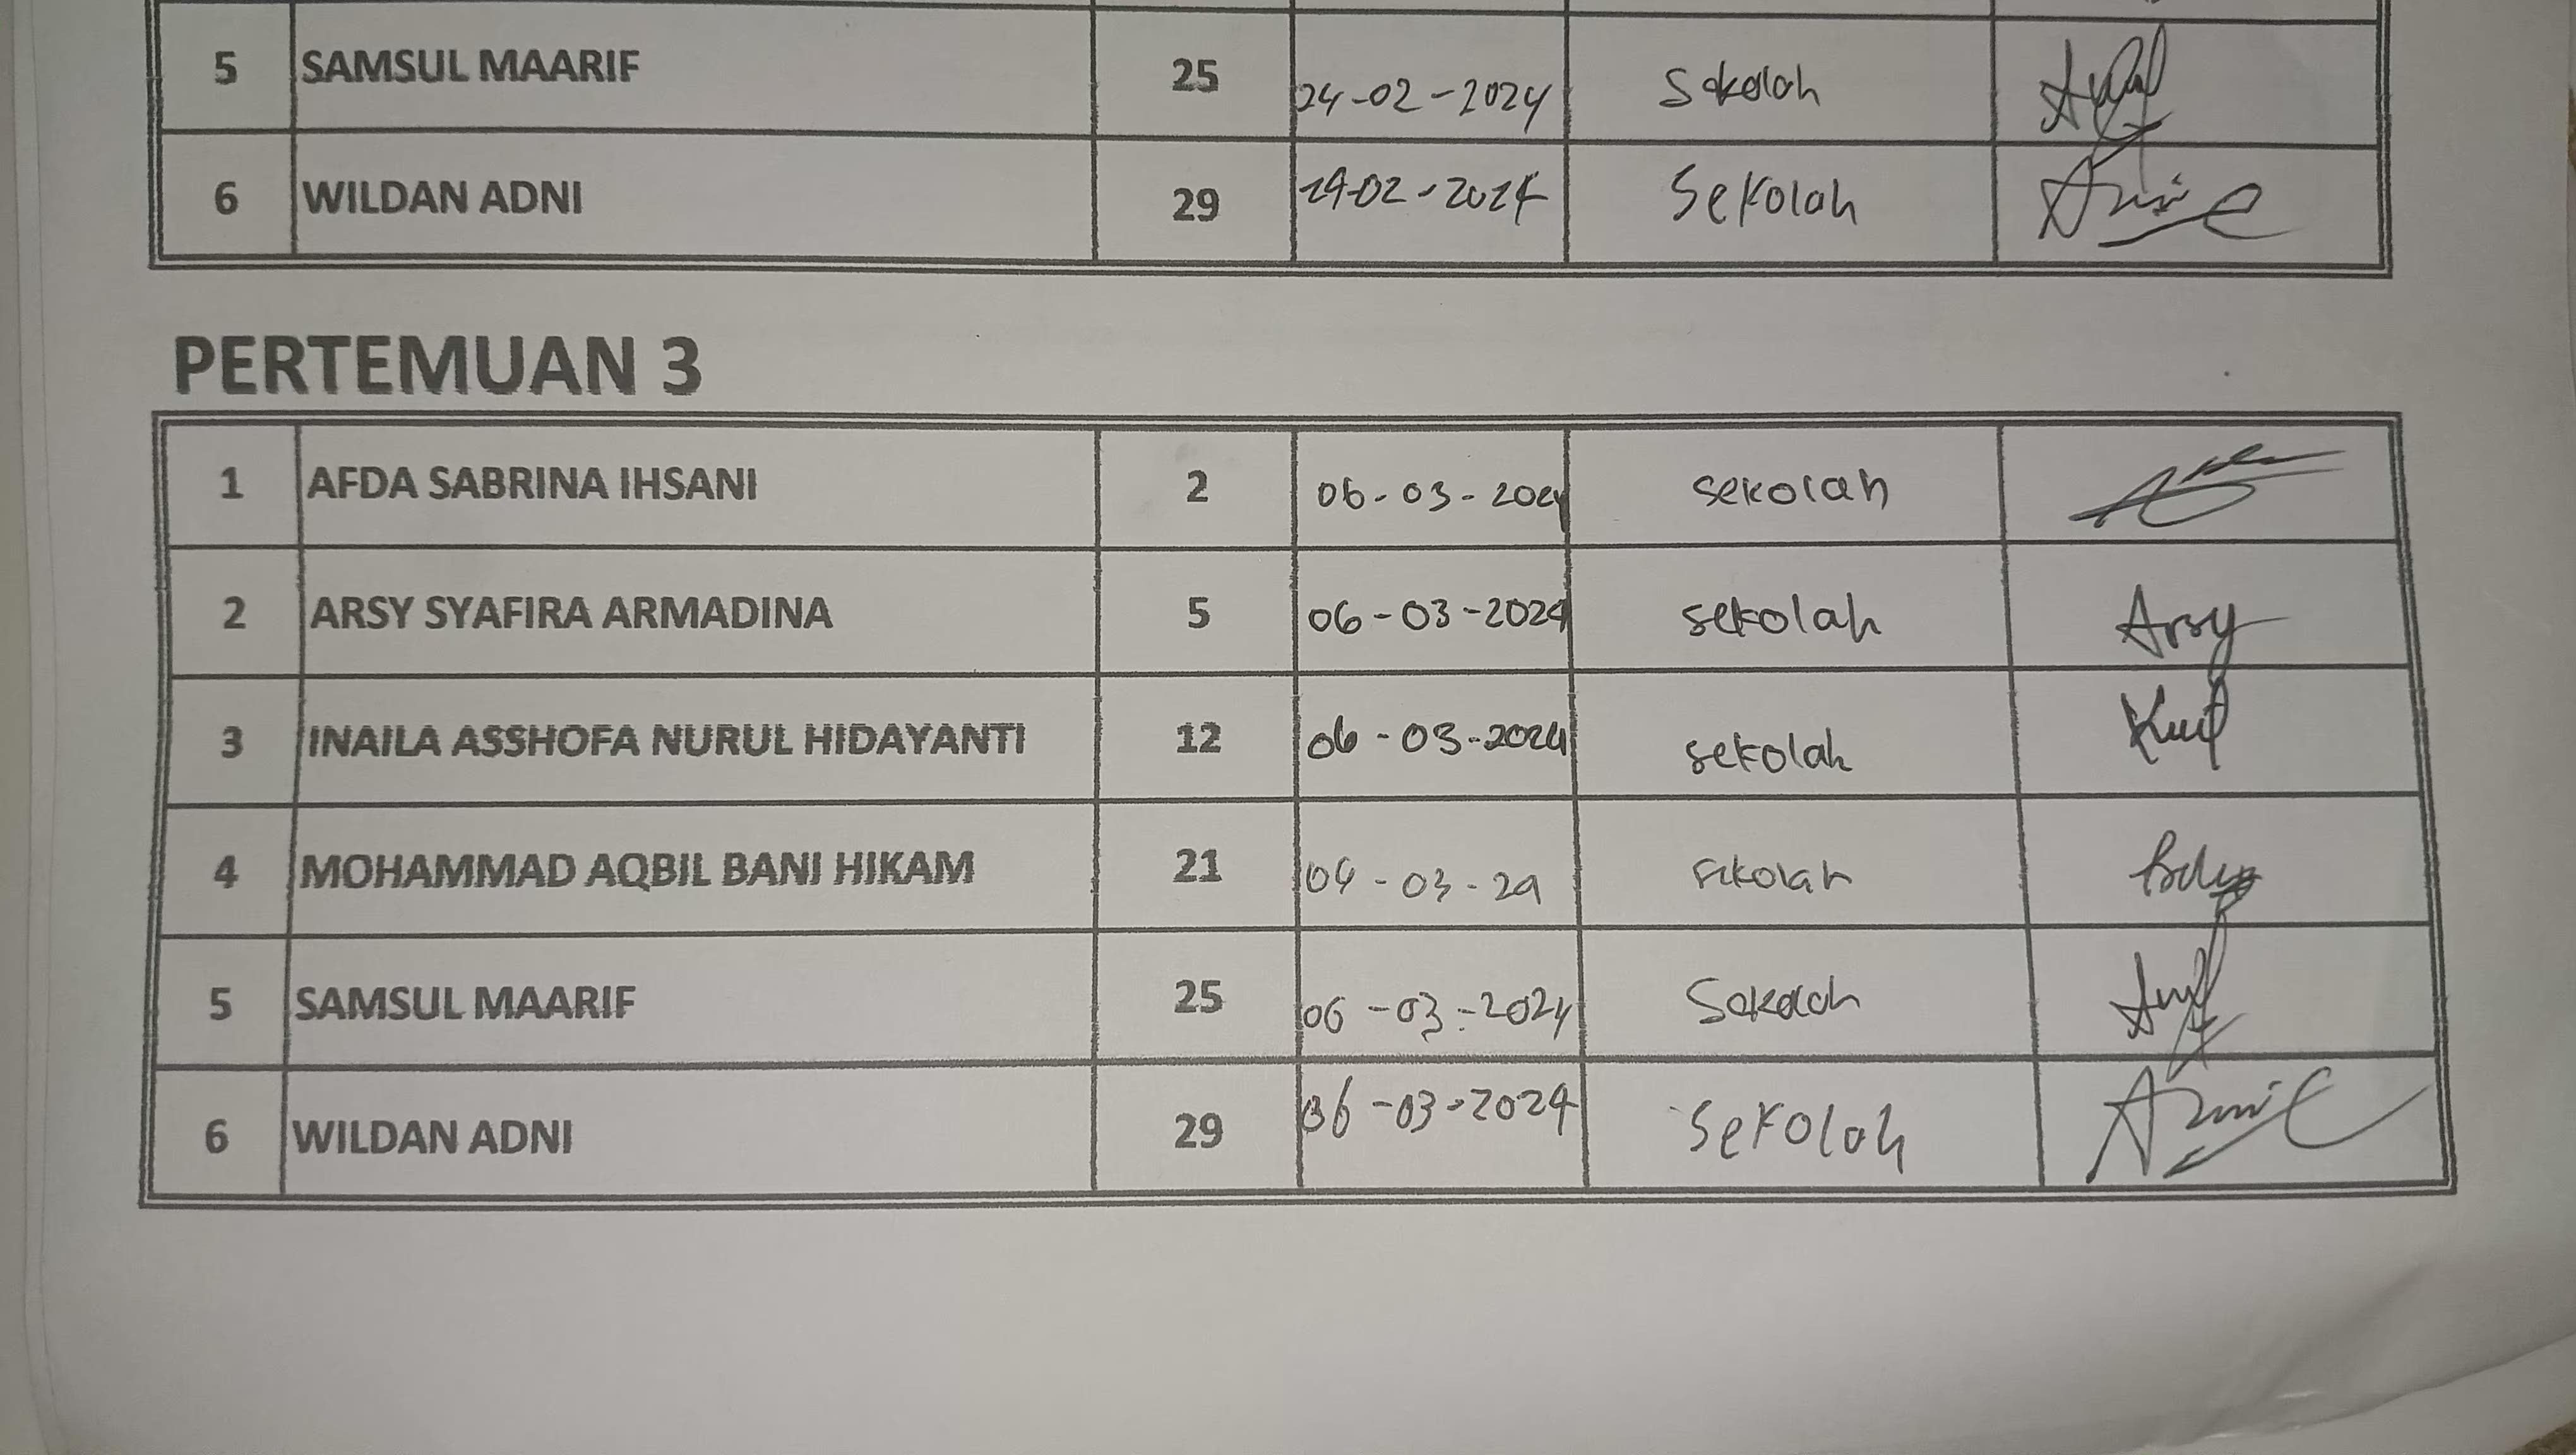 5 SAMSUL MAARIF 25 24-02-2024 Sekolah
6 WILDAN ADNI 29 24-02-2024 Sekolah
PERTEMUAN 3
1 AFDA SABRINA IHSANI 2 06-03-2024 sekolah
2 ARSY SYAFIRA ARMADINA 5 06-03-2024 sekolah Arsy
3 INAILA ASSHOFA NURUL HIDAYANTI 12 06-03-2024 sekolah
4 MOHAMMAD AQBIL BANI HIKAM 21 sekolah
5 SAMSUL MAARIF 25 06-03-2024 Sekolah
6 WILDAN ADNI 29 06-03-2024 Sekolah